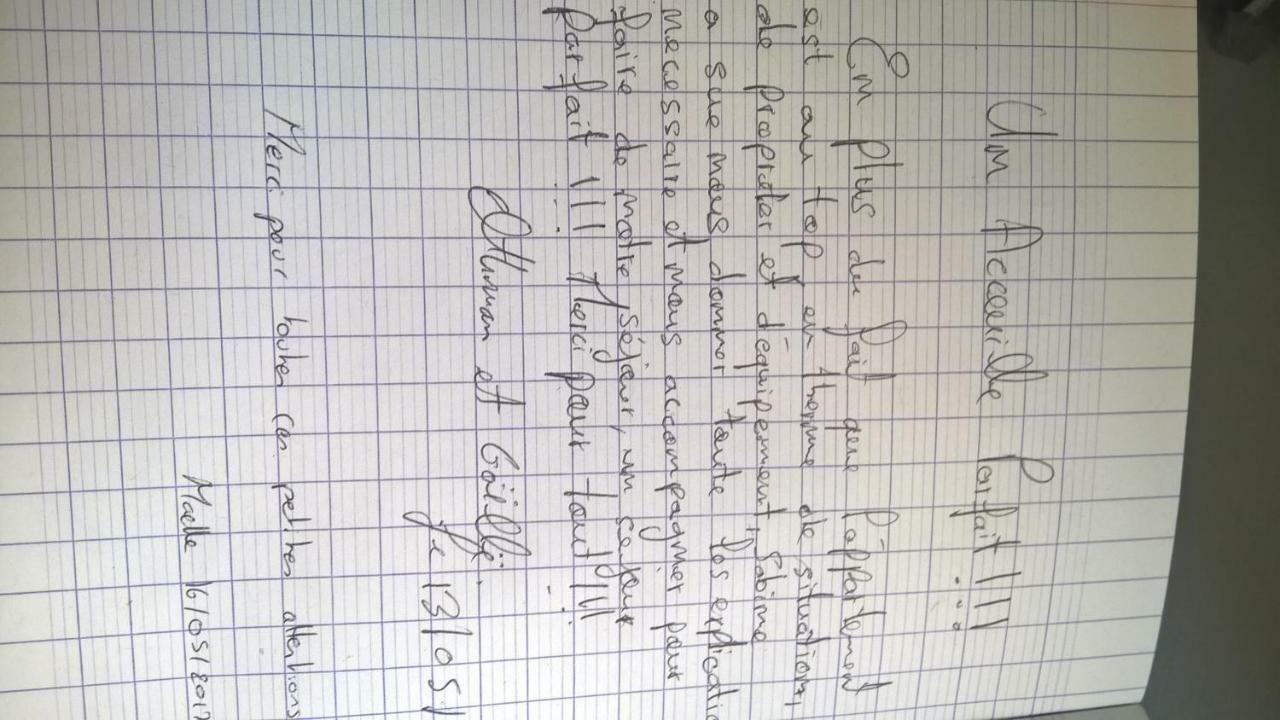 Un Acceuille Parfait !!!
En plus du fait que l'appartement
est au top en therme de situation,
de propreter et d'équipement, Sabine
a sue nous donner toute les explicatio
necessaire et nous accompagner pour
faire de notre séjour, un séjour
parfait !!! Merci pour tout !!!
Othman et Gaëlle.
Le 13/05/
Merci pour toutes ces petites attentions
Maelle 16/05/2017